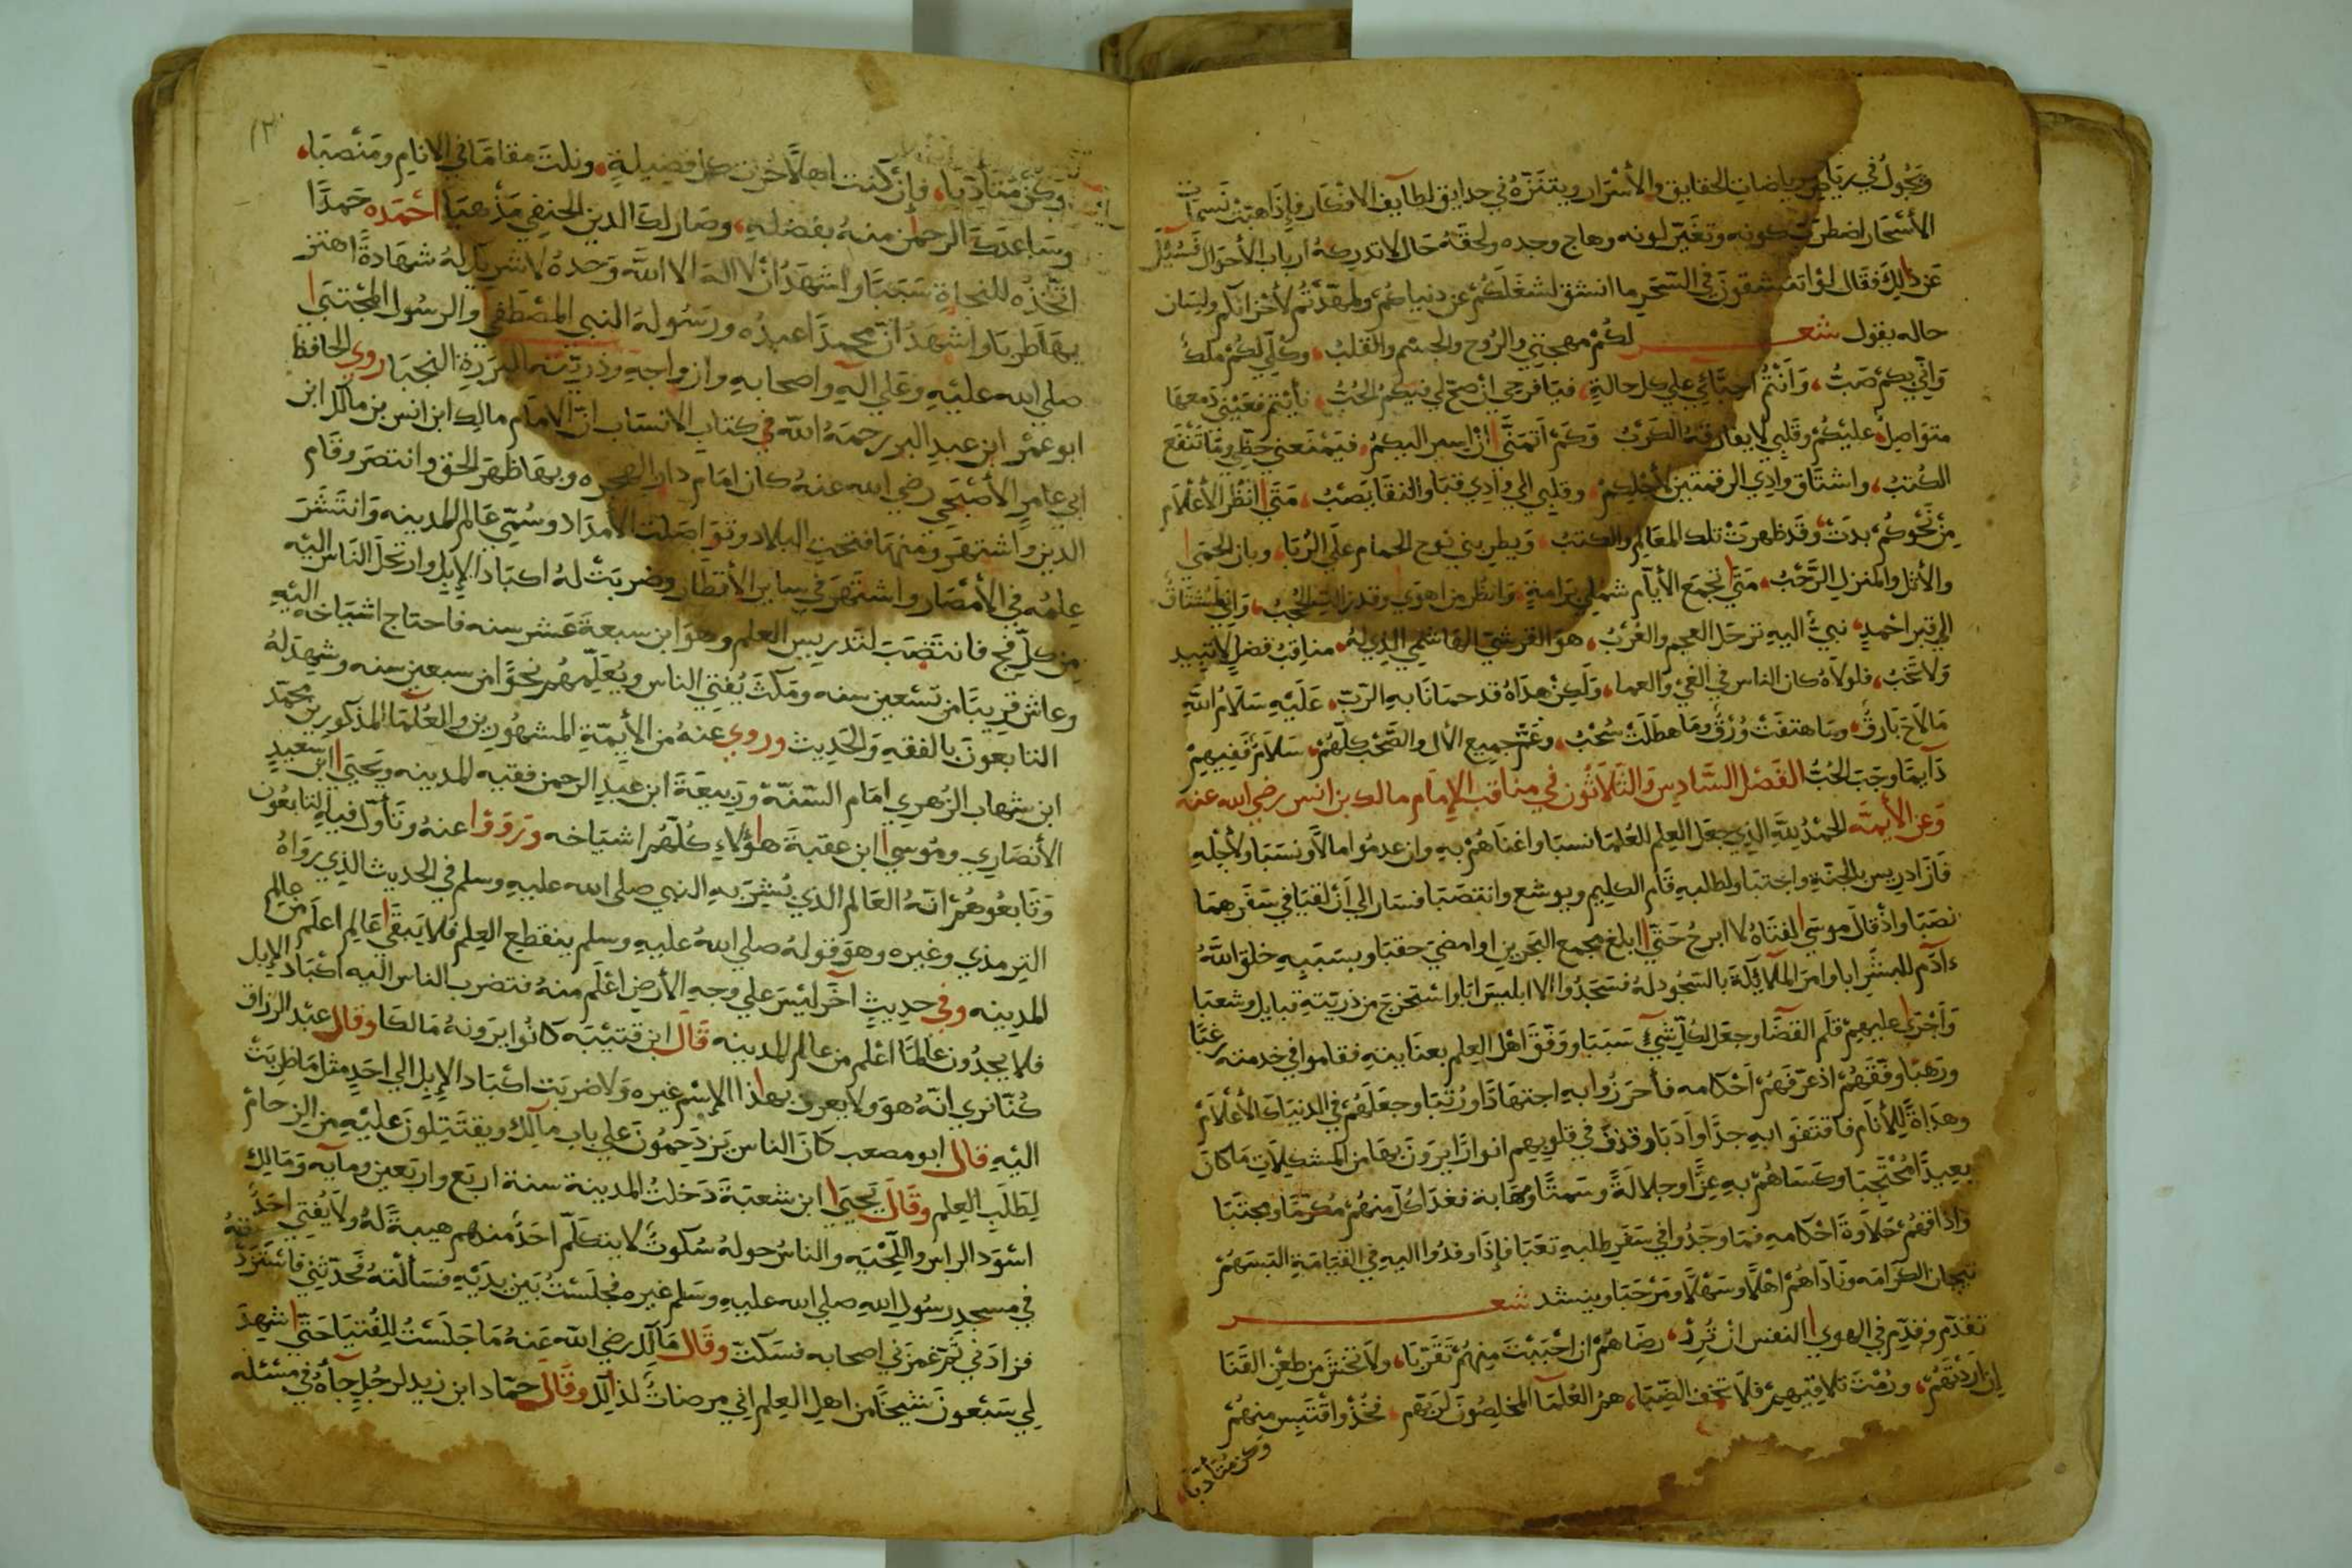 ويجول في رياض رياضات الحقايق والأسرار ويتنزه في حدايق لطآيف الافكار فإذا هبت نسمات
الأسحار اضطرب كونه وتغير لونه وهاج وجده ولحقه حال لا تدركه ارباب الأحوال فسُئل
عن ذلك فقال لو اتنشقون في السحر ما انشق لشغلكم عن دنياكم ولسان
حاله يقول شعر لكم مهجتي والروح والجسم والقلب، وكلي لكم ملك
واني بكم صب، وأنتم احبآئي علي كل حالة، فيا فرحي ان صح لي فيكم الحب، نأيتم فعيني دمعها
متواصل، عليكم وقلبي لا يفارقه الكرب، وكم اتمنى ان اسير اليكم، فيمنعني حظي وما تنفع
الكتب، واشتاق وادي الرقمتين لأجلكم، وقلبي الي وادي قبا والنقا يصب، متى انظر الأعلام
من نحوكم بدت، وقد ظهرت تلك المعالم والكتب، ويطربني نوح الحمام على الربا، وبان الحمى
والأثل والمنزل الرحب، متى تجمع الأيام شملي برامة، وانظر من اهوى وقد زالت الحجب، واني لمشتاق
الي قبر احمد، نبي اليه ترحل العجم والعرب، هو القرشي الهاشمي الذي له، مناقب فضل لا تبيد
ولا تخب، فلولاه كان الناس في الغي والعما، ولكن هداه قد حمانا به الرب، عليه سلام الله
ما لاح بارق، وما هتفت ورق وما هطلت سحب، وعم جميع الآل والصحب كلهم، سلام ففيهم
دآيما وجب الحب الفصل السادس والثلاثون في مناقب الإمام مالك بن انس رضي الله عنه
وعن الأيمة الحمد لله الذي جعل العلم للعلما نسبا واغناهم به وان عدموا مالا ونسبا ولأجله
فاز ادريس بالجنة واجتبا ولطلبه قام الكليم ويوشع وانتصبا فسار الى أن لقيا في سفرهما
نصبا واذ قال موسى لفتاه لا ابرح حتى ابلغ مجمع البحرين او امضي حقبا وبسببه خلق الله
ءادم للبشر ابا وامر الملآئكة بالسجود له فسجدوا الا ابليس ابا واستخرج من ذريته قبايل وشعبا
وأجرى عليهم قلم القضا وجعل لكل شيء سببا ووفق اهل العلم بعنايته فقاموا في خدمته رغبا
ورهبا وفقههم اذ عرفهم أحكامه فأحرزوا به اجتهادا ورتبا وجعلهم في الدنيا كالأعلام
وهداة للأنام فاقتفوا به جدا وأدبا وقذف في قلوبهم انوارا يرون بها من المشكلات ما كان
بعيدا محتجبا وكساهم به عزا وجلالة وسمتا ومهابة فغدا كل منهم مكرما ومجتبا
واذاقهم حلاوة احكامه فما وجدوا في سفر طلبه تعبا فإذا وفدوا اليه في القيامة البسهم
تيجان الكرامه وناداهم اهلا وسهلا ومرحبا وينشد شعر
تقدم وقدم في الهوي النفس ان ترد، رضاهم ان احببت منهم تقربا، ولا تخش من طعن القنا
ان اردتهم، ورمت تلاقيهم فلا تخف الضبا، هم العلمآ المخلصون لربهم، فخذ واقتبس منهم
وكن متأدبا،
١٢
وكن متأدبا، فإن كنت اهلا حزت كل فضيلة، ونلت مقاما في الانام ومنصبا،
وساعدك الرحمن منه بفضله، وصار لك الدين الحنفي مذهبا احمده حمدا
اتخذه للنجاة سببا واشهد ان لا اله الا الله وحده لا شريك له شهادة اهتز
بها طربا واشهد ان محمدا عبده ورسوله النبي المصطفي والرسول المجتبى
صلي الله عليه وعلي اله واصحابه وازواجه وذريته البررة النجبا روي الحافظ
ابو عمر ابن عبد البر رحمه الله في كتاب الانساب ان الامام مالك ابن انس بن مالك ابن
ابي عامر الأصبحي رضي الله عنه كان امام دار الهجره وبها ظهر الحق وانتصر وقام
الدين واشتهر ومنها فتحت البلاد وتواصلت الأمداد وسُمي عالم المدينه وانتشر
علمه في الأمصار واشتهر في ساير الأقطار وضربت له اكباد الإبل وارتحل الناس اليه
من كل فج فانتصب لتدريس العلم وهو ابن سبعة عشر سنه فاحتاج اشياخه اليه
وعاش قريبا من تسعين سنه ومكث يُفتي الناس ويعلمهم نحوا من سبعين سنه وشهد له
التابعون بالفقه والحديث وروي عنه من الأيمة المشهورين والعلما المذكورين محمد
ابن شهاب الزهري امام السنة وربيعة ابن عبد الرحمن فقيه المدينه ويحيى ابن سعيد
الأنصاري وموسي ابن عقبة هؤلاء كلهم اشياخه ورووا عنه وتأول فيه التابعون
وتابعوهم انه العالم الذي بشر به النبي صلى الله عليه وسلم في الحديث الذي رواه
الترمذي وغيره وهو قوله صلي الله عليه وسلم ينقطع العلم فلا يبقى عالم اعلم من عالم
المدينه وفي حديث آخر ليس علي وجه الأرض اعلم منه فتضرب الناس اليه اكباد الإبل
فلا يجدون عالما اعلم من عالم المدينه قال ابن قتيبه كانوا يرونه مالكا وقال عبد الرزاق
كنا نري انه هو ولا يعرف بهذا الإسم غيره ولا ضربت اكباد الإبل الي احد مثل ما ضربت
اليه قال ابو مصعب كان الناس يزدحمون علي باب مآلك ويقتتلون عليه من الزحام
لطلب العلم وقال يحيى ابن شعبة دخلت المدينة سنة اربع واربعين ومايه ومالك
اسود الراس واللحيه والناس حوله سكوت لا يتكلم احد منهم هيبة له ولا يُفتي احد
في مسجد رسول الله صلي الله عليه وسلم غيره فجلست بين يديه فسألته فحدثني فاستزدته
فزادني ثم غمزني اصحابه فسكت وقال مآلك رضي الله عنه ما جلست للفتيا حتى اشهد
لي سبعون شيخا من اهل العلم اني مرضات لذلك وقال حماد ابن زيد لرجل جآه في مسئله